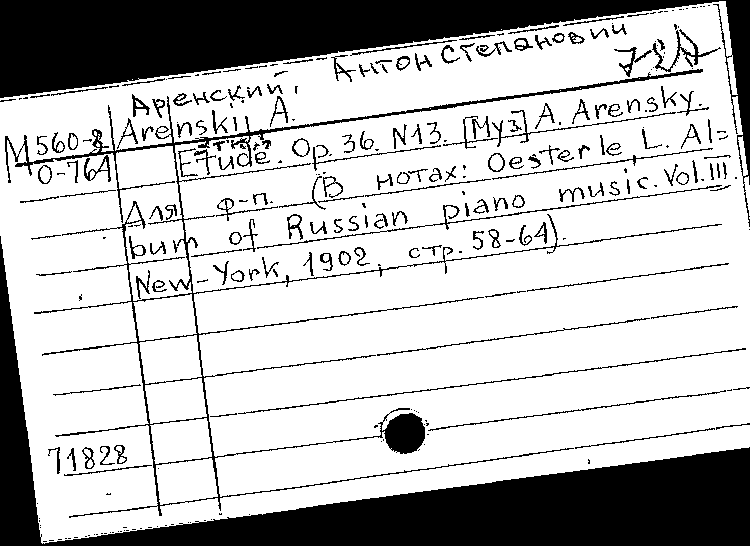 Аренский, Антон Степанович
М 560-8
0-764
Arenskij A.
этюд
Etude. Op. 36. N13. [Муз.] A. Arensky.
Для ф-п. (В нотах: Oesterle, L. Al=
bum of Russian piano music. Vol. III.
New-York, 1902, стр. 58-64).
71828